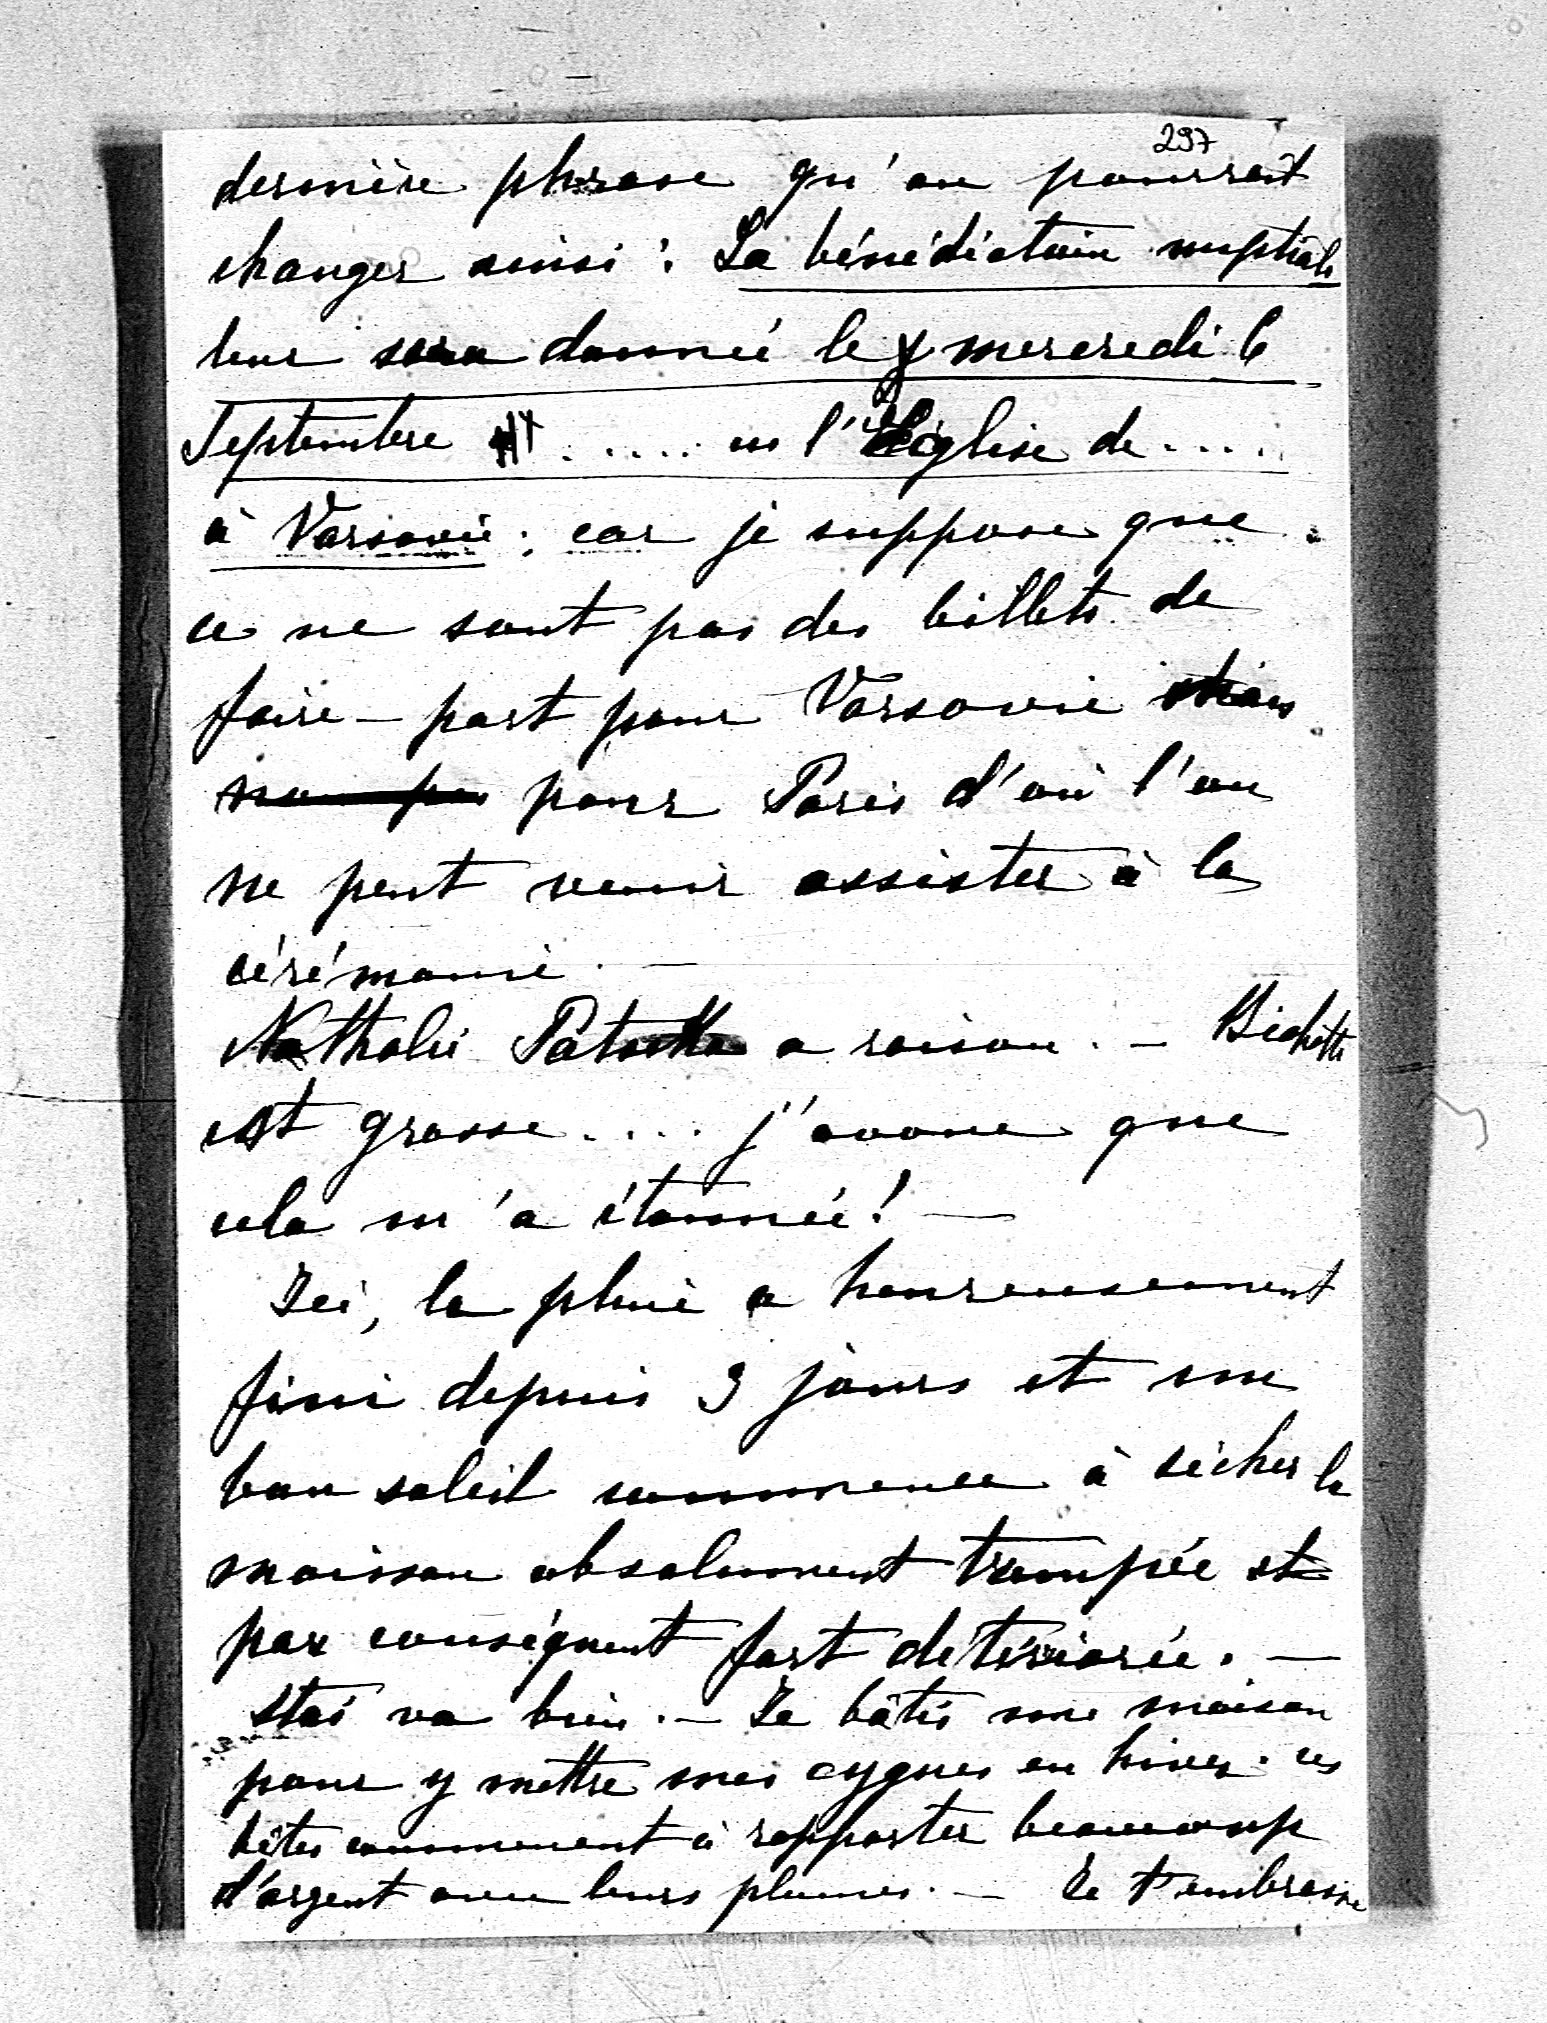 297
dernière phrase qu'on pourrait
changer ainsi : La bénédiction nuptiale
leur sera donnée le mercredi 6
Septembre ..... en l'Eglise de .....
à Varsovie ; car je suppose que
ce ne sont pas des billets de
faire-part pour Varsovie mais
pour Paris d'où l'on
ne peut venir assister à la
cérémonie. —
Nathalie Patocka a raison. — Bichette
est grosse .... j'avoue que
cela m'a étonnée ! —
Ici, la pluie a heureusement
fini depuis 3 jours et un
bon soleil commence à sécher la
moisson absolument trempée et
par conséquent fort détériorée. —
Stas va bien. — Je bâtis une maison
pour y mettre mes cygnes en hiver. ces
bêtes commencent à rapporter beaucoup
d'argent avec leurs plumes. — Je t'embrasse